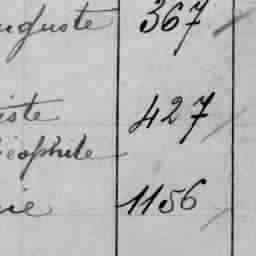 auguste 367
iste 427
éophile
rie 1156